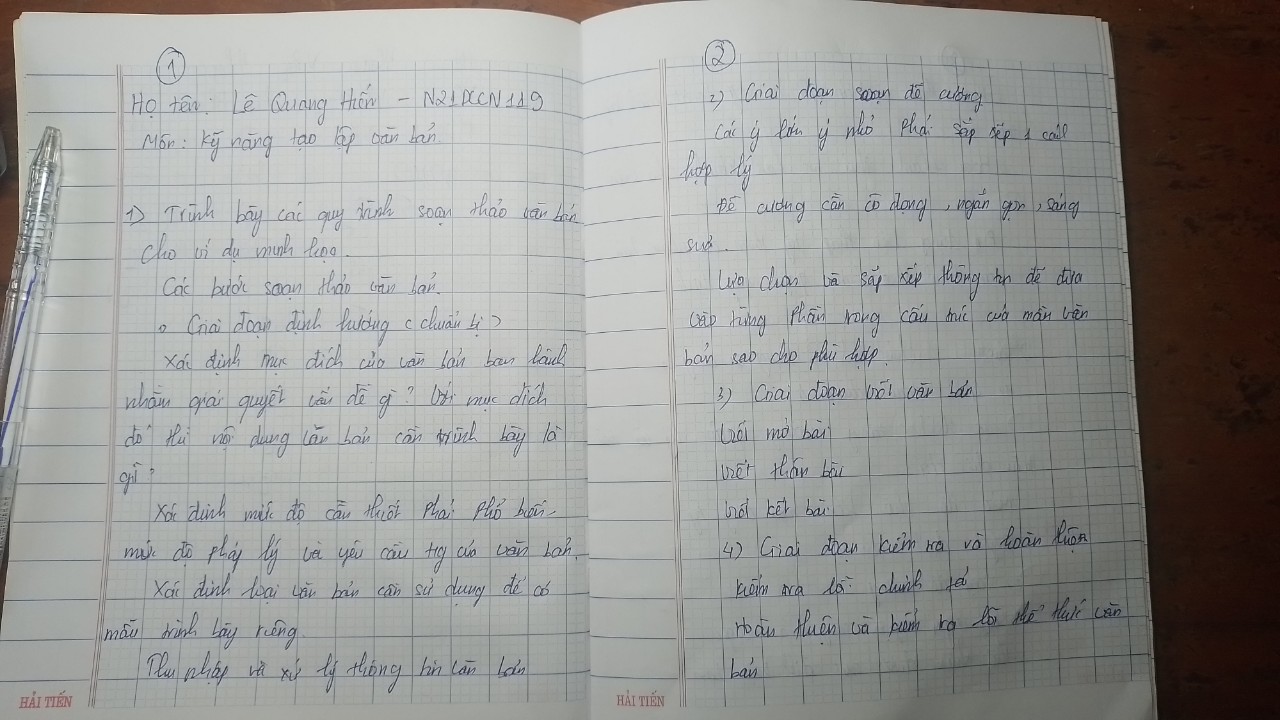 1
Họ tên: Lê Quang Hiến - N21DCCN119
Môn: Kỹ năng tạo lập văn bản
1) Trình bày các quy trình soạn thảo văn bản
Cho ví dụ minh họa.
Các bước soạn thảo văn bản.
Giai đoạn định hướng (chuẩn bị)
Xác định mục đích của văn bản ban hành
nhằm giải quyết vấn đề gì? Với mục đích
đó thì nội dung văn bản cần trình bày là
gì?
Xác định mức độ cần thiết phải phổ biến
mức độ pháp lý và yêu cầu của văn bản.
Xác định loại văn bản cần sử dụng để có
mẫu trình bày riêng.
Thu nhập và xử lý thông tin văn bản
HẢI TIẾN
2
2) Giai đoạn soạn đề cương
Các ý lớn ý nhỏ phải sắp xếp 1 cách
hợp lý
Đề cương cần cô đọng, ngắn gọn, sáng
sủa.
Lựa chọn và sắp xếp thông tin để đưa
vào từng phần trong cấu trúc của văn
bản sao cho phù hợp.
3) Giai đoạn viết văn bản
Viết mở bài
Viết thân bài
Viết kết bài
4) Giai đoạn kiểm tra và hoàn thiện
Kiểm tra lỗi chính tả
Hoàn thiện và kiểm tra lỗi thể thức văn
bản
HẢI TIẾN